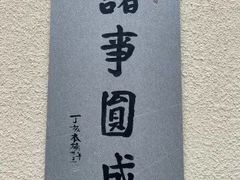 諸事圓成
丁亥春